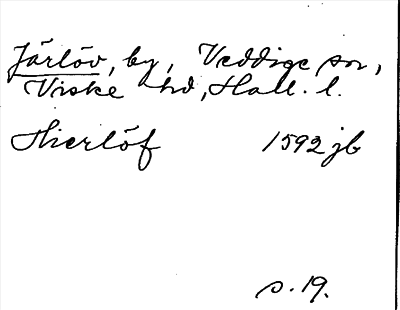 Järlöv, by, Veddige sn,
Viske hd, Hall. l.
Hierlöf 1592 jb
s. 19.